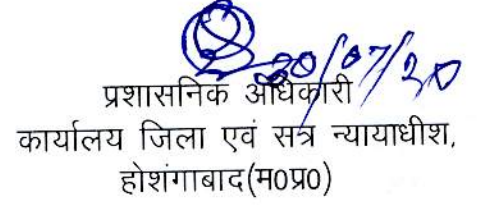 20/07/20
प्रशासनिक अधिकारी
कार्यालय जिला एवं सत्र न्यायाधीश,
होशंगाबाद(म0प्र0)